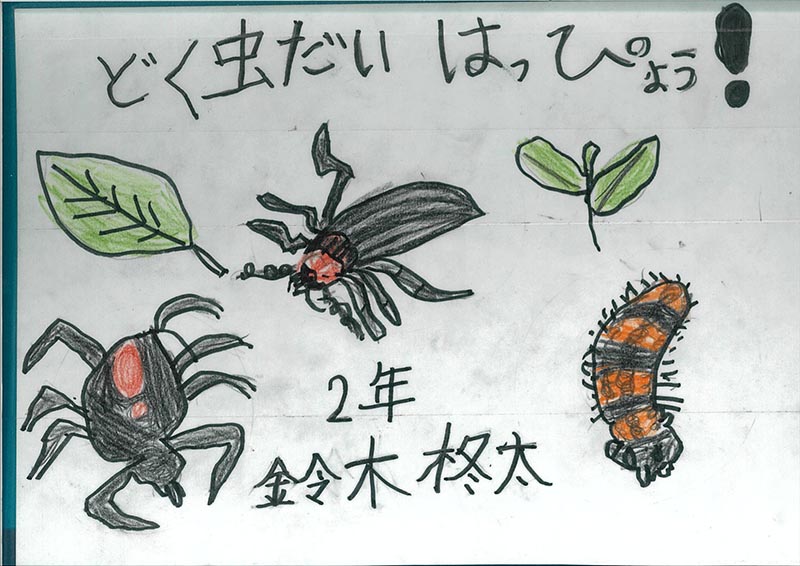 どく虫だい はっぴょう!
2年
鈴木 柊太